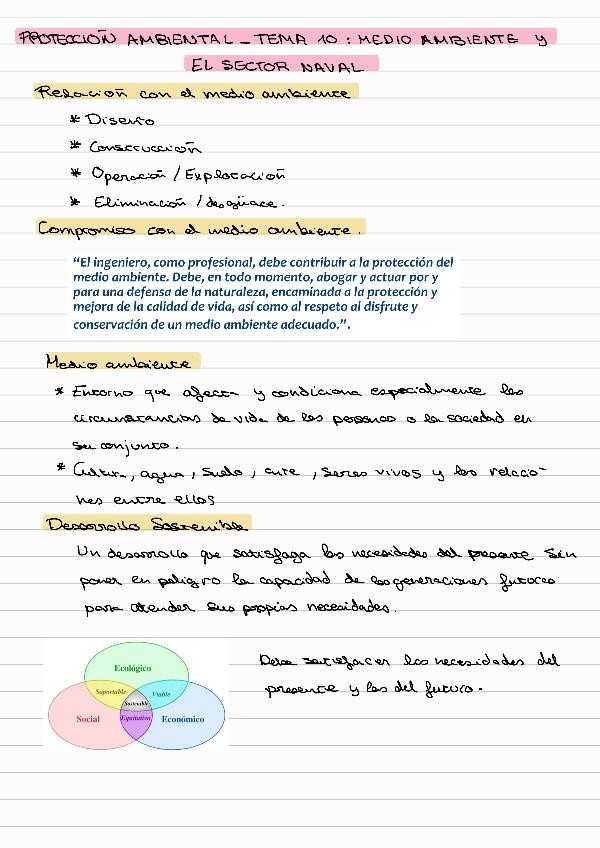 PROTECCIÓN AMBIENTAL - TEMA 10 : MEDIO AMBIENTE Y
EL SECTOR NAVAL
Relación con el medio ambiente
* Diseño
* Construcción
* Operación / Explotación
* Eliminación / desgüace.
Compromiso con el medio ambiente.
“El ingeniero, como profesional, debe contribuir a la protección del
medio ambiente. Debe, en todo momento, abogar y actuar por y
para una defensa de la naturaleza, encaminada a la protección y
mejora de la calidad de vida, así como al respeto al disfrute y
conservación de un medio ambiente adecuado.”.
Medio ambiente
* Entorno que afecta y condiciona especialmente las
circunstancias de vida de las personas o la sociedad en
su conjunto.
* Cultura, agua, suelo, aire, seres vivos y las relacio-
nes entre ellos
Desarrollo Sostenible
Un desarrollo que satisfaga las necesidades del presente sin
poner en peligro la capacidad de las generaciones futuras
para atender sus propias necesidades.
Ecológico
Soportable
Viable
Sostenible
Social
Equitativo
Económico
Debe satisfacer las necesidades del
presente y las del futuro.